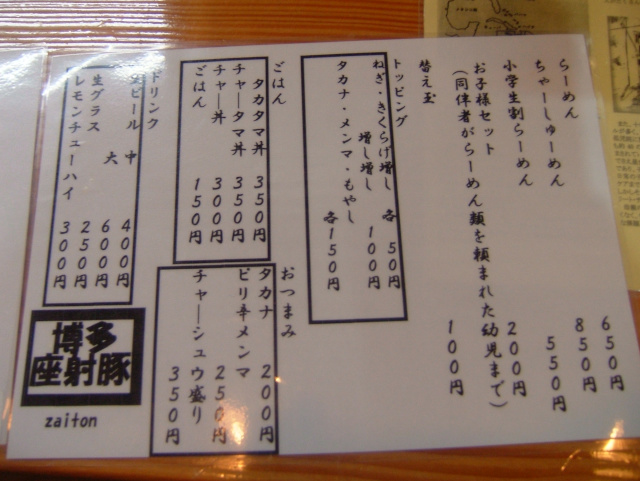 らーめん 650円
ちゃーしゅーめん 850円
小学生割らーめん 550円
お子様セット 200円
（同伴者がらーめん類を頼まれた幼児まで）
替え玉 100円
トッピング
ねぎ・きくらげ増し 各50円
増し増し 100円
タカナ・メンマ・もやし 各150円
ごはん
タカタマ丼 350円
チャータマ丼 350円
チャー丼 300円
ごはん 150円
おつまみ
タカナ 200円
ピリ辛メンマ 250円
チャーシュウ盛り 350円
ドリンク
生ビール 中 400円
大 600円
生グラス 250円
レモンチューハイ 300円
博多
座射豚
zaiton